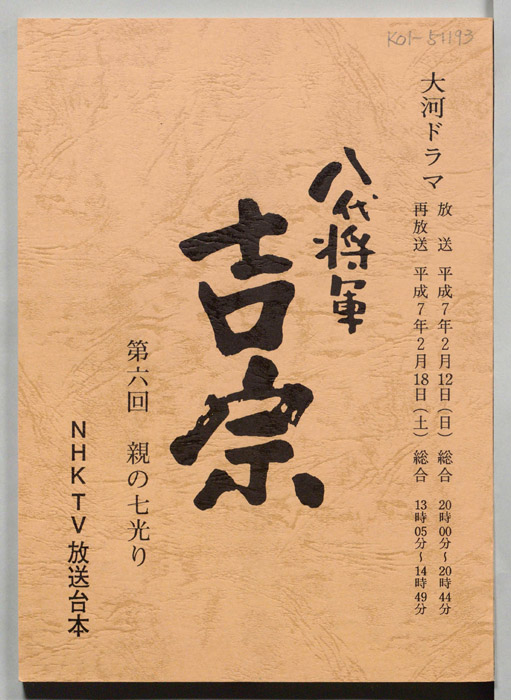 K01-51193
大河ドラマ
放送 平成7年2月12日(日) 総合 20時00分~20時44分
再放送 平成7年2月18日(土) 総合 13時05分~14時49分
八代将軍
吉宗
第六回 親の七光り
NHK TV 放送台本